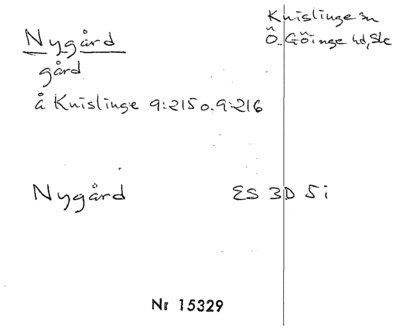 Nygård
gård
å Knislinge 9:215 o. 9:216
Knislinge sn
Ö. Göinge hd, Sk
Nygård ES 3D 5i
Nr 15329